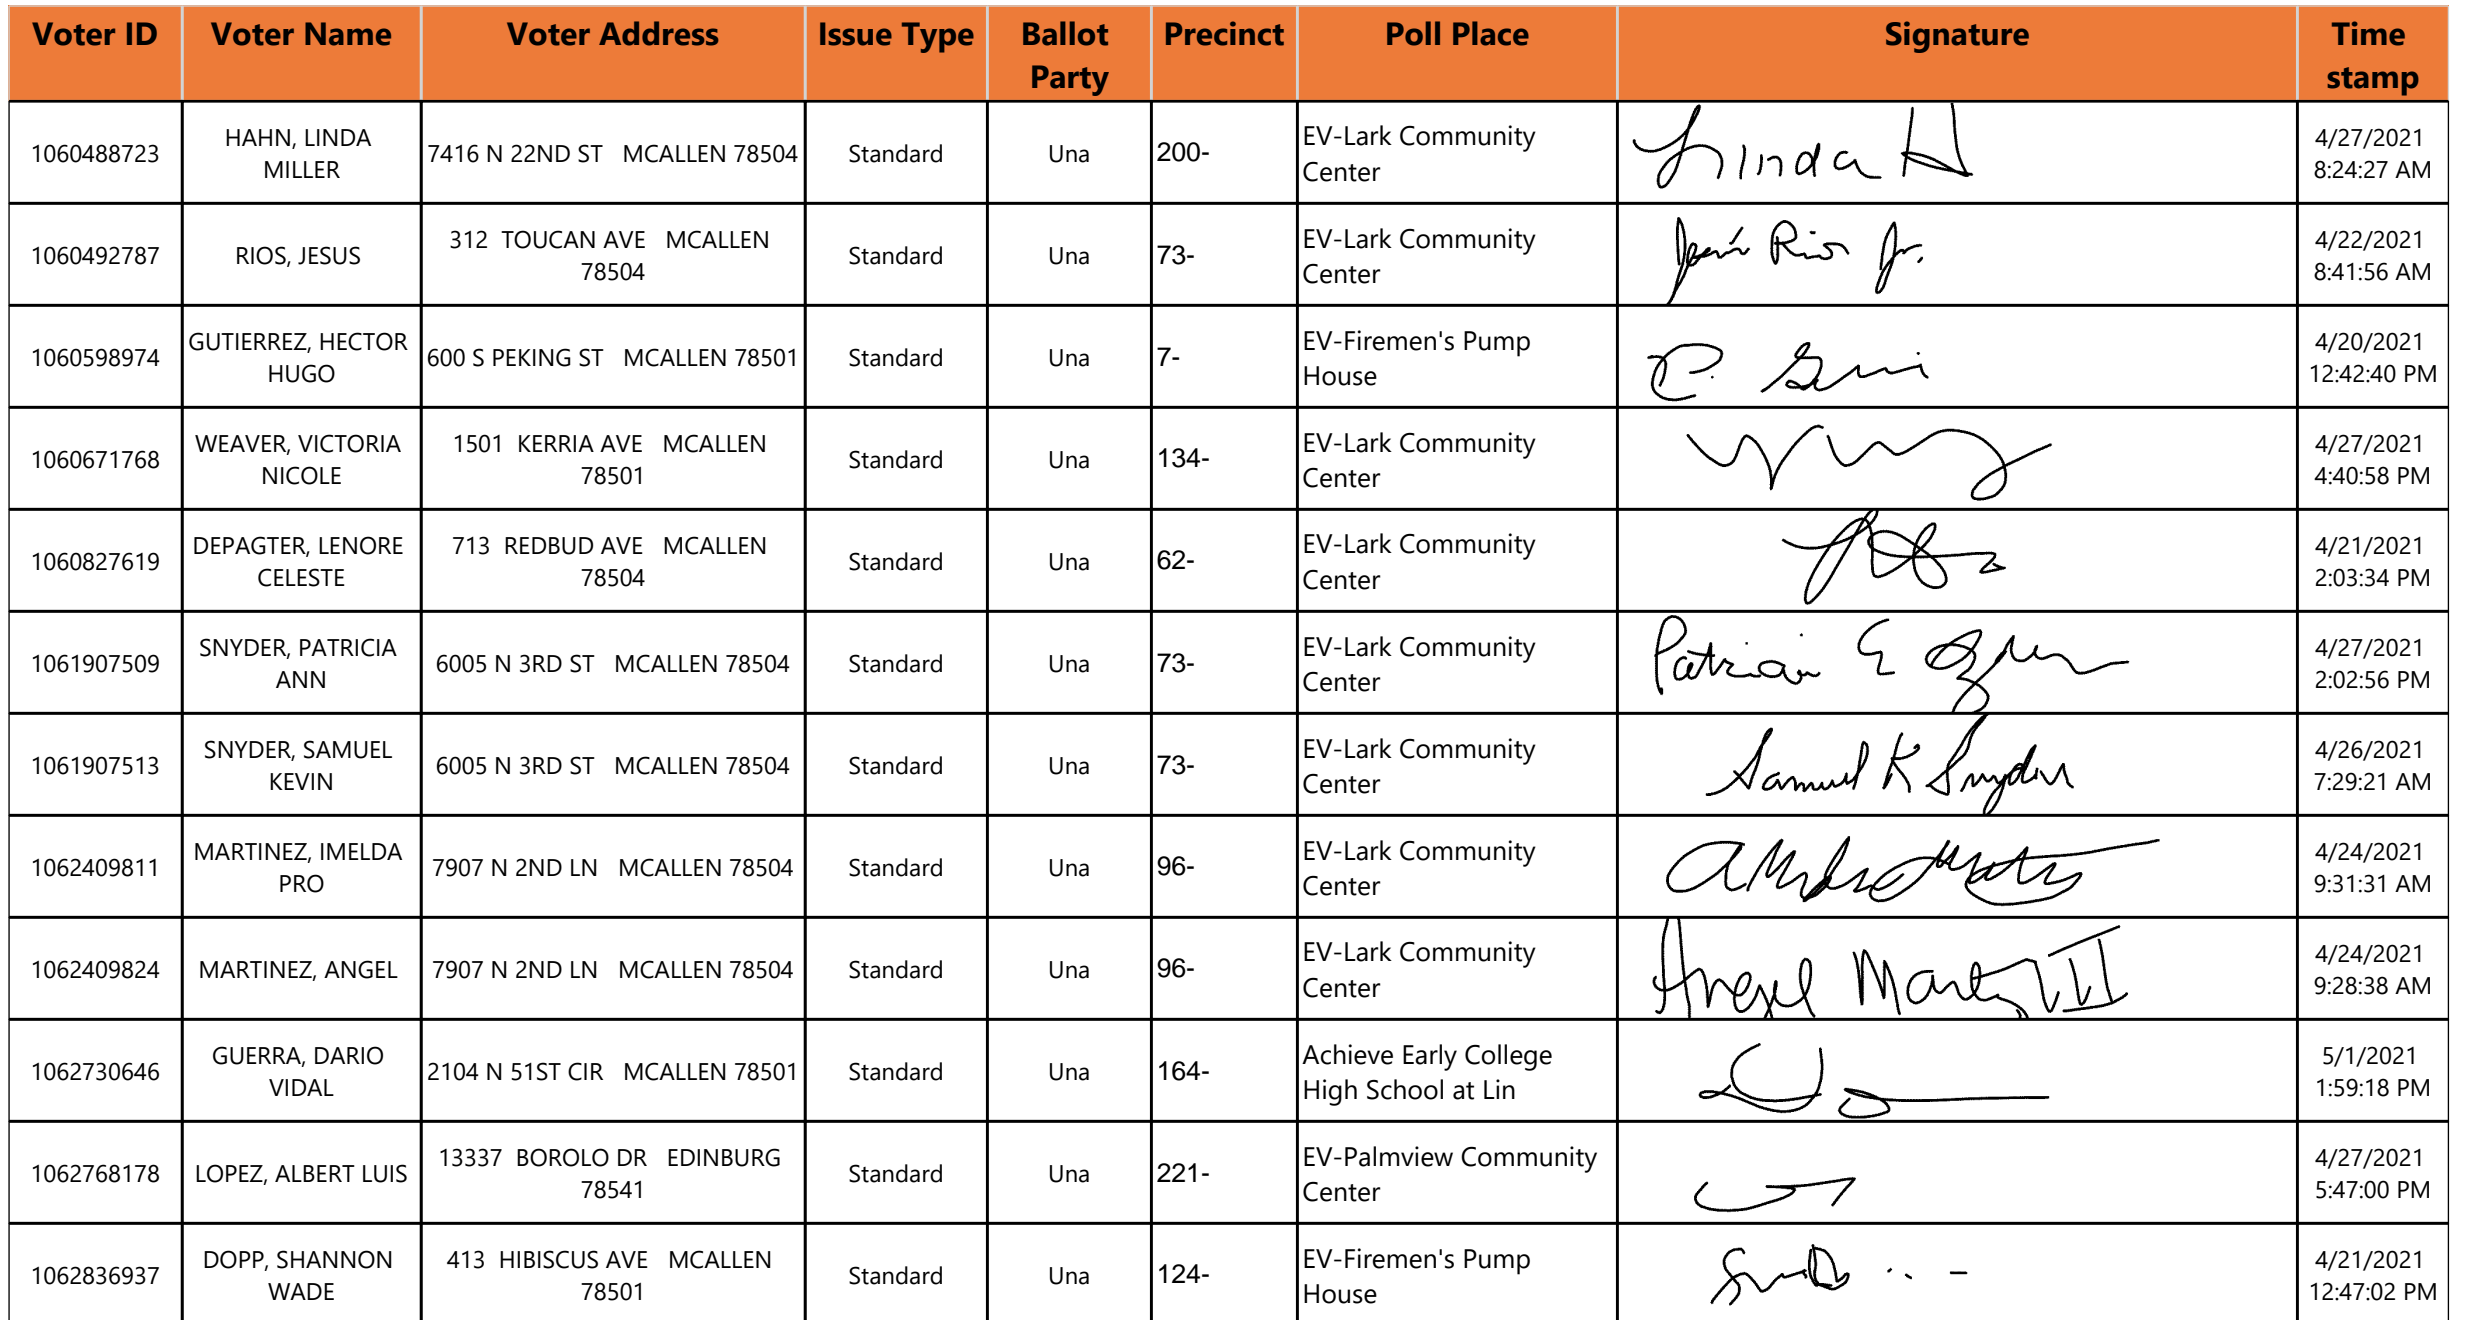 Voter ID Voter Name Voter Address Issue Type Ballot Party Precinct Poll Place Signature Time stamp
1060488723 HAHN, LINDA MILLER 7416 N 22ND ST MCALLEN 78504 Standard Una 200- EV-Lark Community Center Linda H 4/27/2021 8:24:27 AM
1060492787 RIOS, JESUS 312 TOUCAN AVE MCALLEN 78504 Standard Una 73- EV-Lark Community Center Jesús Rios Jr. 4/22/2021 8:41:56 AM
1060598974 GUTIERREZ, HECTOR HUGO 600 S PEKING ST MCALLEN 78501 Standard Una 7- EV-Firemen's Pump House 4/20/2021 12:42:40 PM
1060671768 WEAVER, VICTORIA NICOLE 1501 KERRIA AVE MCALLEN 78501 Standard Una 134- EV-Lark Community Center 4/27/2021 4:40:58 PM
1060827619 DEPAGTER, LENORE CELESTE 713 REDBUD AVE MCALLEN 78504 Standard Una 62- EV-Lark Community Center 4/21/2021 2:03:34 PM
1061907509 SNYDER, PATRICIA ANN 6005 N 3RD ST MCALLEN 78504 Standard Una 73- EV-Lark Community Center Patricia 4/27/2021 2:02:56 PM
1061907513 SNYDER, SAMUEL KEVIN 6005 N 3RD ST MCALLEN 78504 Standard Una 73- EV-Lark Community Center Samuel K Snyder 4/26/2021 7:29:21 AM
1062409811 MARTINEZ, IMELDA PRO 7907 N 2ND LN MCALLEN 78504 Standard Una 96- EV-Lark Community Center 4/24/2021 9:31:31 AM
1062409824 MARTINEZ, ANGEL 7907 N 2ND LN MCALLEN 78504 Standard Una 96- EV-Lark Community Center Angel Martinez III 4/24/2021 9:28:38 AM
1062730646 GUERRA, DARIO VIDAL 2104 N 51ST CIR MCALLEN 78501 Standard Una 164- Achieve Early College High School at Lin 5/1/2021 1:59:18 PM
1062768178 LOPEZ, ALBERT LUIS 13337 BOROLO DR EDINBURG 78541 Standard Una 221- EV-Palmview Community Center 4/27/2021 5:47:00 PM
1062836937 DOPP, SHANNON WADE 413 HIBISCUS AVE MCALLEN 78501 Standard Una 124- EV-Firemen's Pump House 4/21/2021 12:47:02 PM